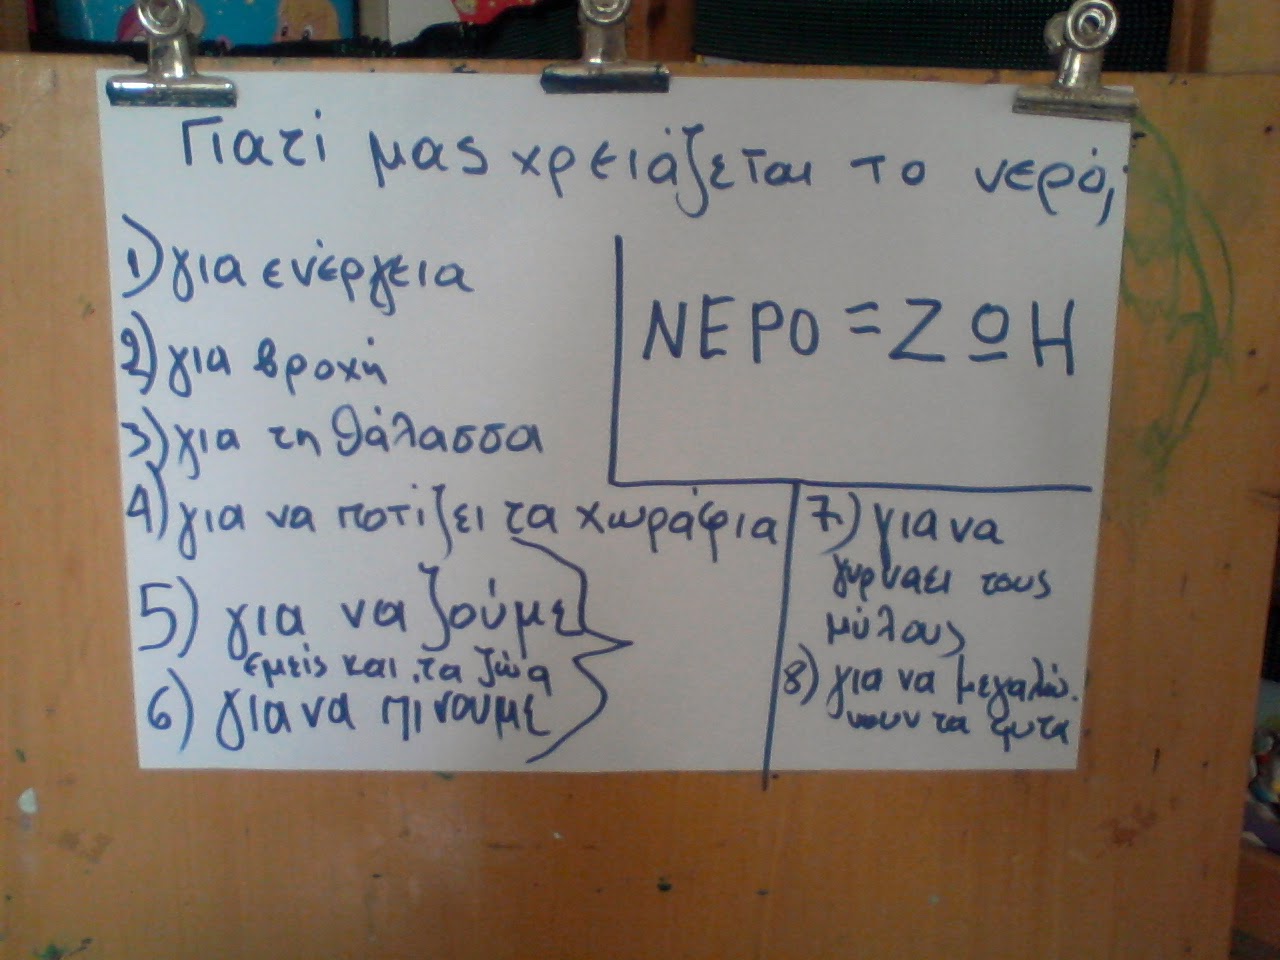 Γιατί μας χρειάζεται το νερό;
1) για ενέργεια
2) για βροχή
3) για τη θάλασσα
4) για να ποτίζει τα χωράφια
5) για να ζούμε
εμείς και τα ζώα
6) για να πινουμε
ΝΕΡΟ = ΖΩΗ
7.) για να
γυρνάει τους
μύλους
8) για να μεγαλώ.
νουν τα φυτα